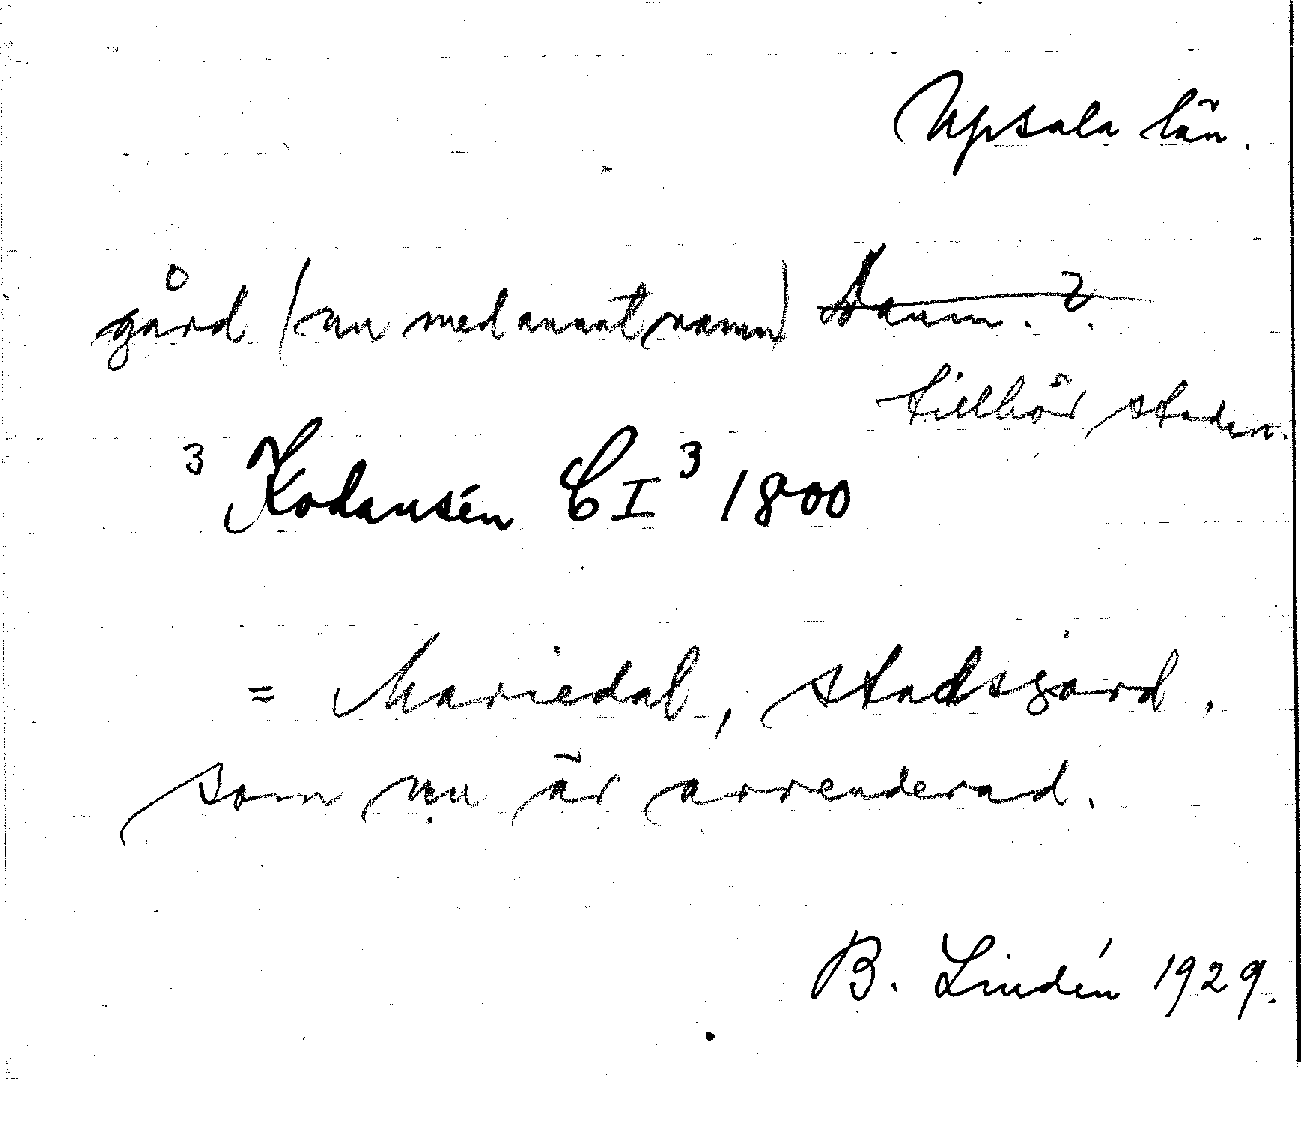 Upsala län.
gård (nu med annat namn) Dannm. ?
tillhör staden.
3 Kodansén CI 3 1800
= Mariedal, stadsgård,
som nu är arrenderad.
B. Lindén 1929.